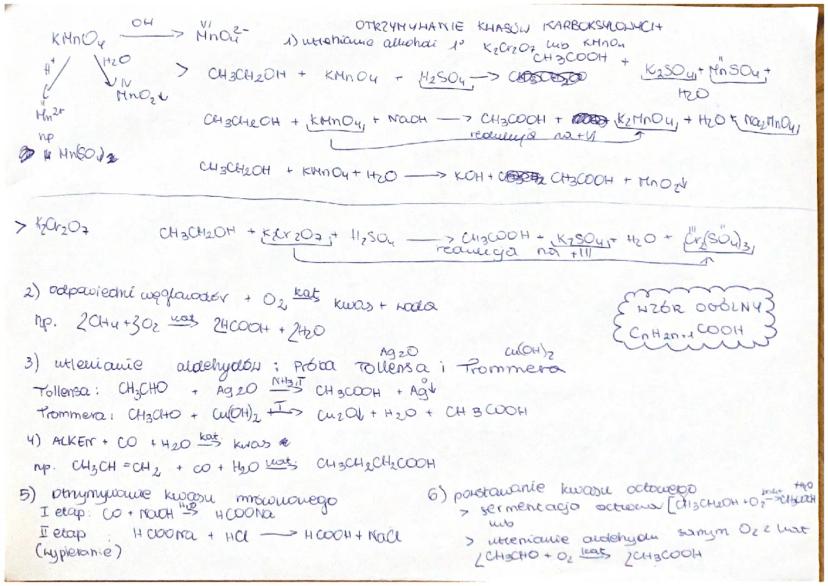 OTRZYMYWANIE KWASÓW KARBOKSYLOWYCH
KMnO4 OH → VI MnO4 2-
H+ H2O
II Mn2+ IV MnO2↓
np
MnSO4
1) utlenianie alkoholi 1° K2Cr2O7 lub KMnO4
> CH3CH2OH + KMnO4 + H2SO4 → CH3COOH + K2SO4 + MnSO4 + H2O
CH3CH2OH + KMnO4 + NaOH → CH3COOH + K2MnO4 + H2O + Na2MnO4
redukcja na +VI
CH3CH2OH + KMnO4 + H2O → KOH + CH3COOH + MnO2↓
> K2Cr2O7
CH3CH2OH + K2Cr2O7 + H2SO4 → CH3COOH + K2SO4 + H2O + Cr2(SO4)3
redukcja na +III
2) odpowiedni węglowodór + O2 kat→ kwas + woda
np. 2CH4 + 3O2 kat→ 2HCOOH + 2H2O
WZÓR OGÓLNY
CnH2n+1COOH
3) utlenianie aldehydów ; próba Tollensa i Trommera
Ag2O Cu(OH)2
Tollensa: CH3CHO + Ag2O NH3,T→ CH3COOH + Ag↓
Trommera: CH3CHO + Cu(OH)2 T→ Cu2O↓ + H2O + CH3COOH
4) ALKEN + CO + H2O kat→ kwas
np. CH3CH=CH2 + CO + H2O kat→ CH3CH2CH2COOH
5) otrzymywanie kwasu mrówkowego
I etap: CO + NaOH → HCOONa
II etap: HCOONa + HCl → HCOOH + NaCl
(wypieranie)
6) powstawanie kwasu octowego
> fermentacja octowa [CH3CH2OH + O2 → CH3COOH + H2O
lub
> utlenianie aldehydu samym O2 z kat
2CH3CHO + O2 kat→ 2CH3COOH